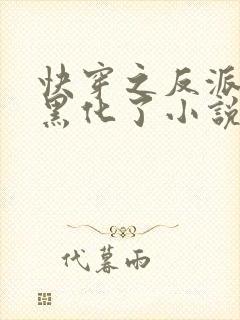 快穿之反派
黑化了小説
代暮雨